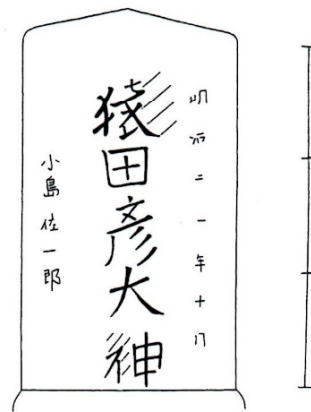 明治二一年十月
猿田彦大神
小島佐一郎